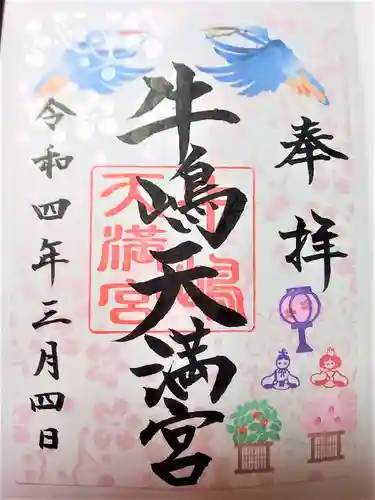 奉拝
牛嶋天満宮
牛嶋
天満宮
令和四年三月四日